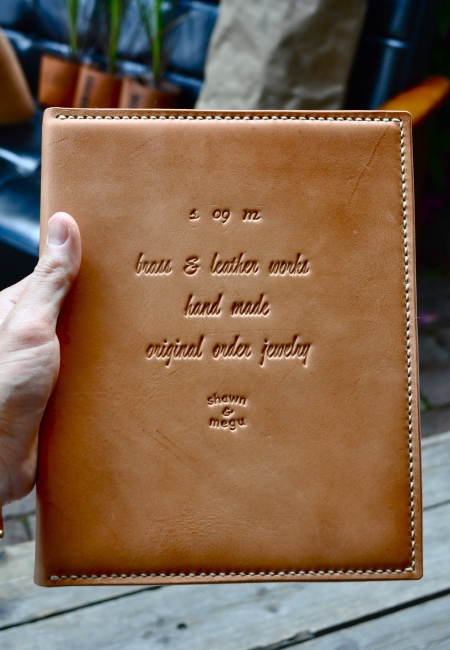 s og m
brass & leather works
hand made
original order jewelry
shawn
&
megu